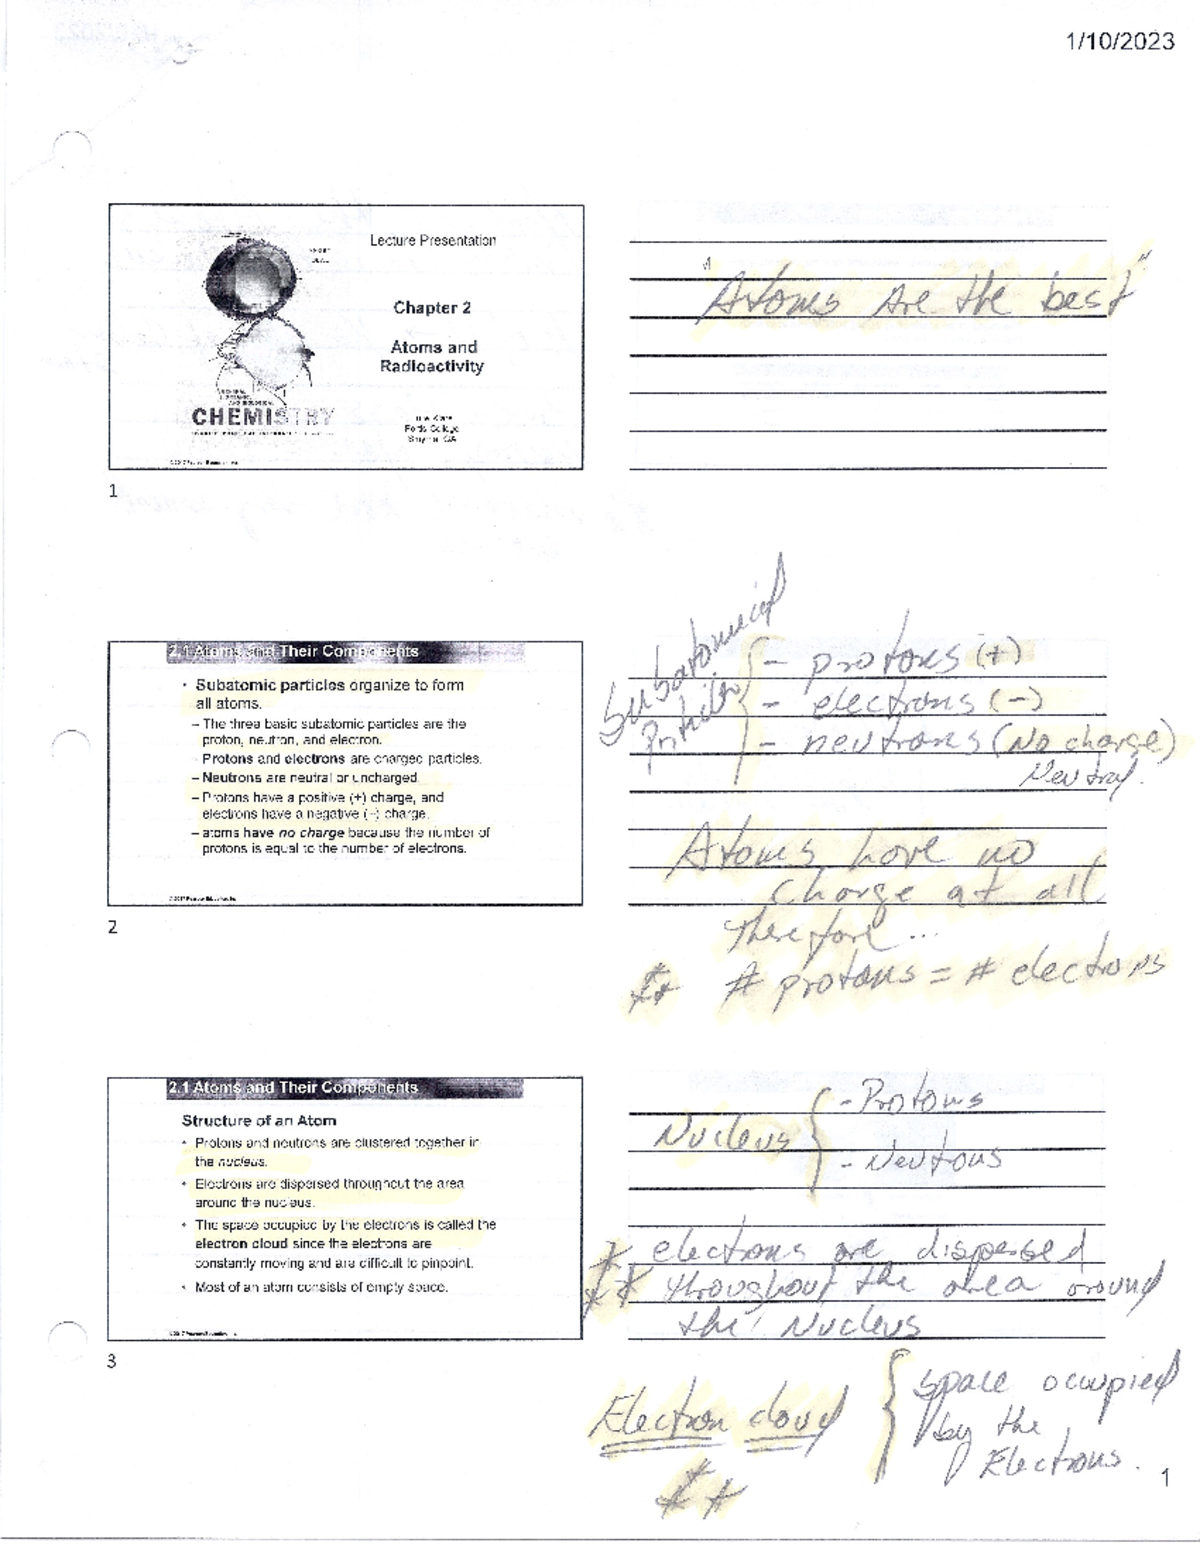 1/10/2023
Lecture Presentation
Chapter 2
Atoms and
Radioactivity
CHEMISTRY
Fortis College
Smyrna GA
1
"Atoms are the best"
2.1 Atoms and Their Components
• Subatomic particles organize to form
all atoms.
– The three basic subatomic particles are the
proton, neutron, and electron.
Protons and electrons are charged particles.
– Neutrons are neutral or uncharged.
– Protons have a positive (+) charge, and
electrons have a negative (–) charge.
– atoms have no charge because the number of
protons is equal to the number of electrons.
2
Subatomical
- protons (+)
- electrons (-)
- neutrons (No charge)
Neutral.
Atoms have no
charge at all
therefore...
** # protons = # electrons
2.1 Atoms and Their Components
Structure of an Atom
• Protons and neutrons are clustered together in
the nucleus.
• Electrons are dispersed throughout the area
around the nucleus.
• The space occupied by the electrons is called the
electron cloud since the electrons are
constantly moving and are difficult to pinpoint.
• Most of an atom consists of empty space.
3
Nucleus
- Protons
- Neutrons
* electrons are dispersed
** throughout the area around
the Nucleus
Electron cloud
**
space occupied
by the
Electrons.
1